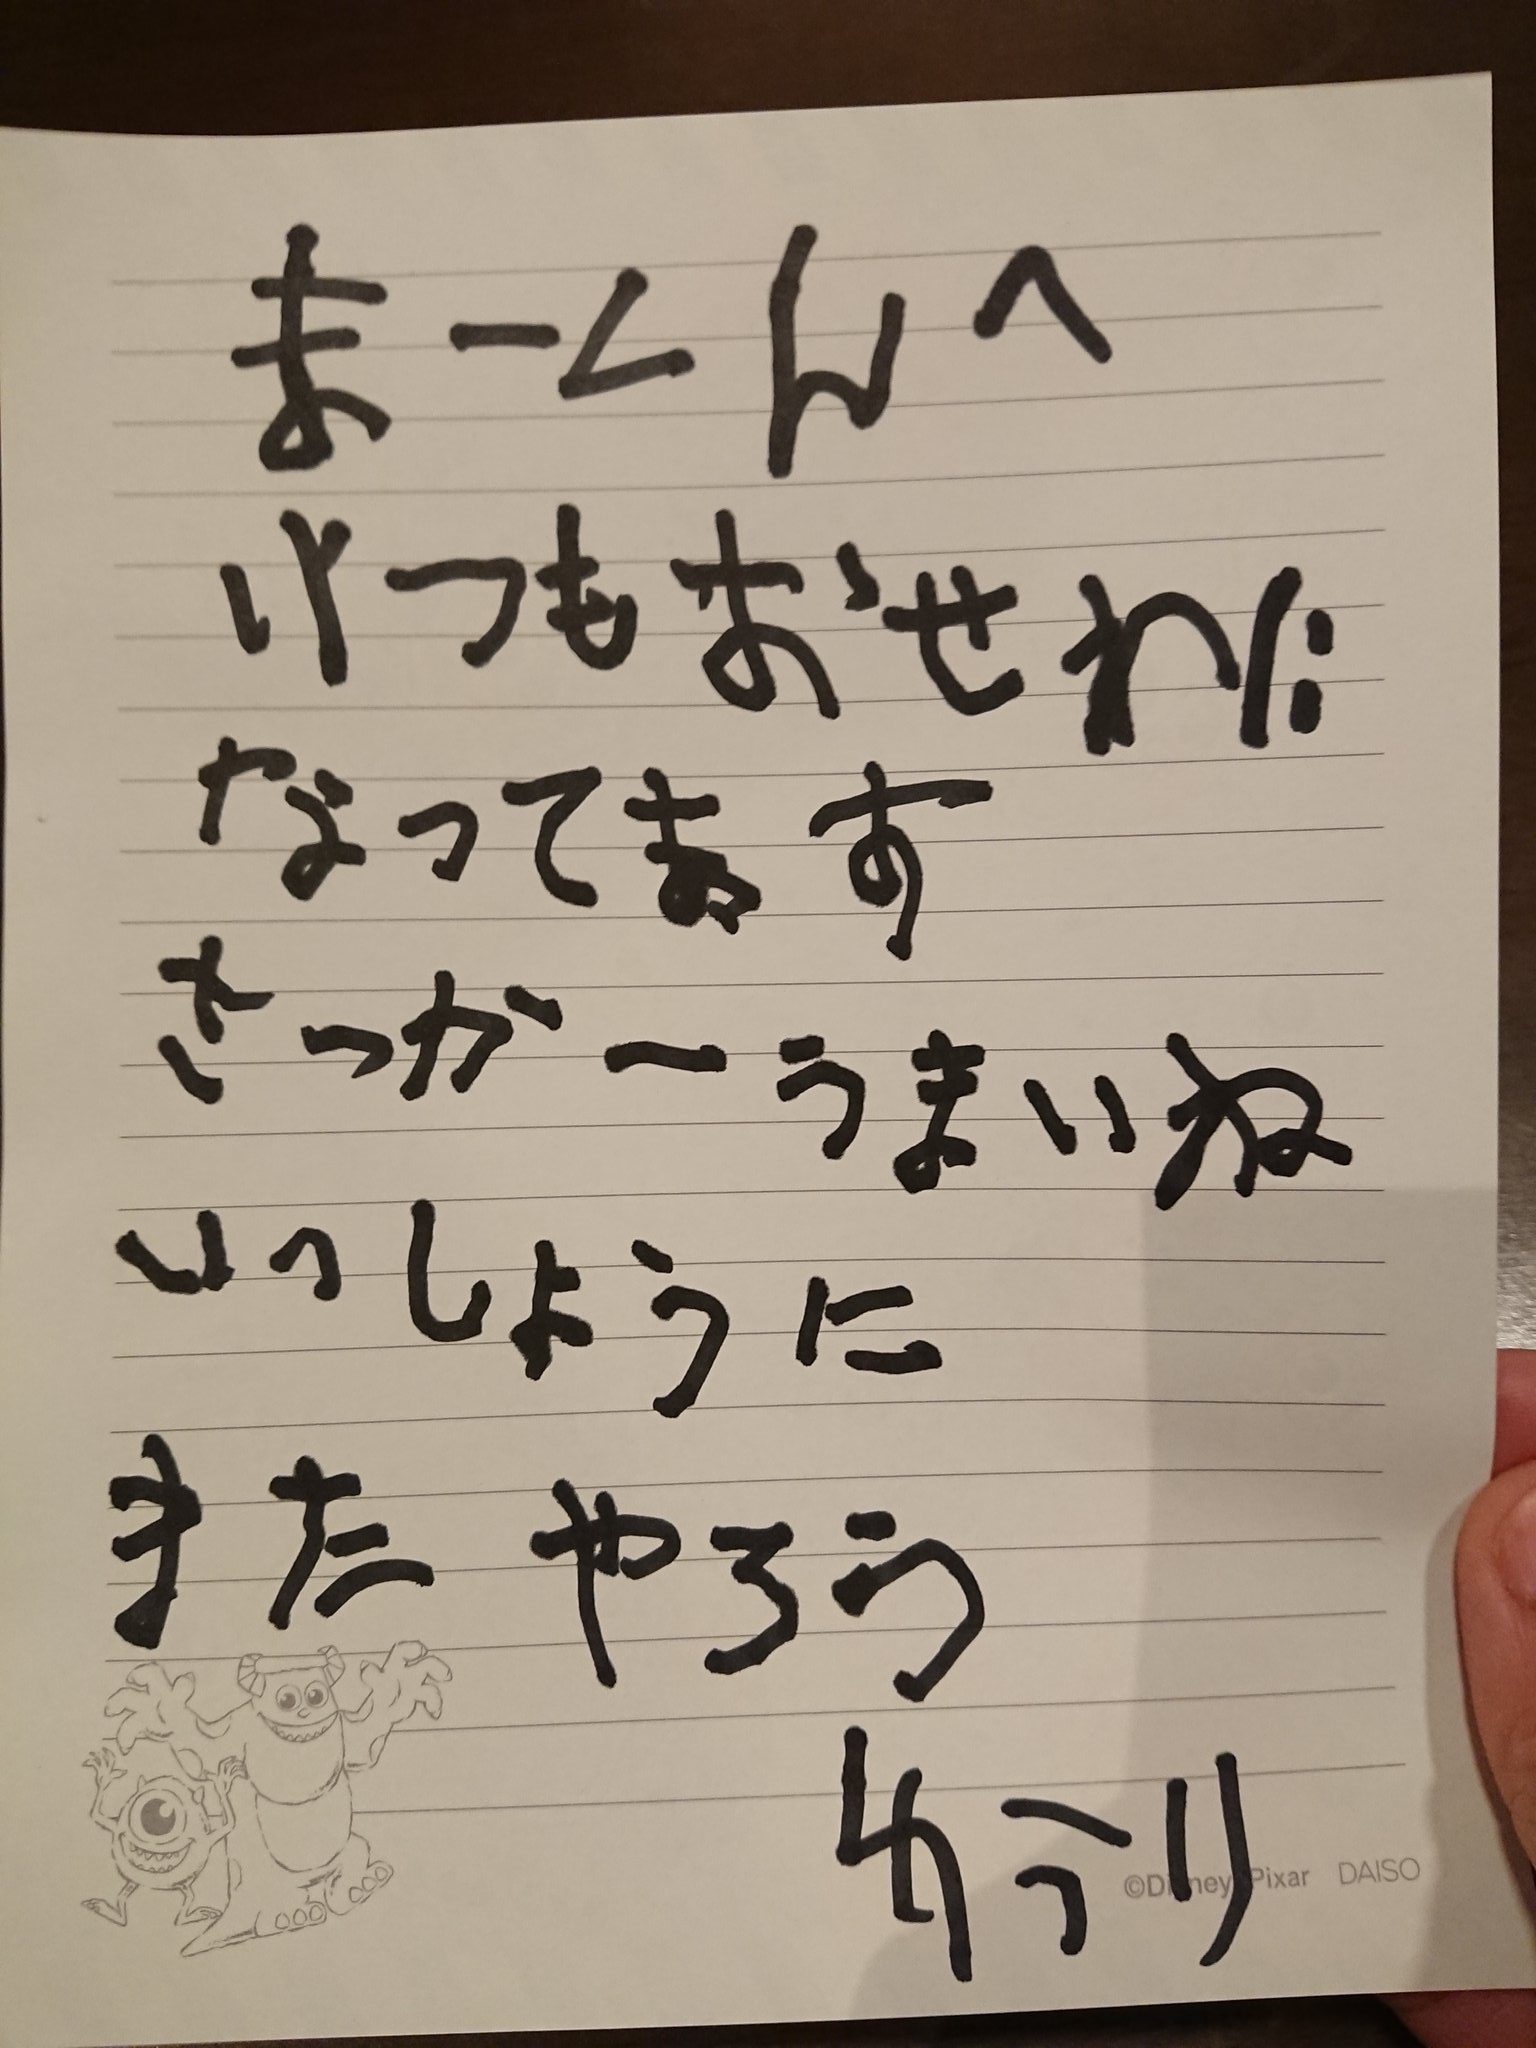 まーくんへ
いつもおせわに
なってます
さっがーうまいね
いっしょうに
またやろう
©Disney/Pixar DAISO